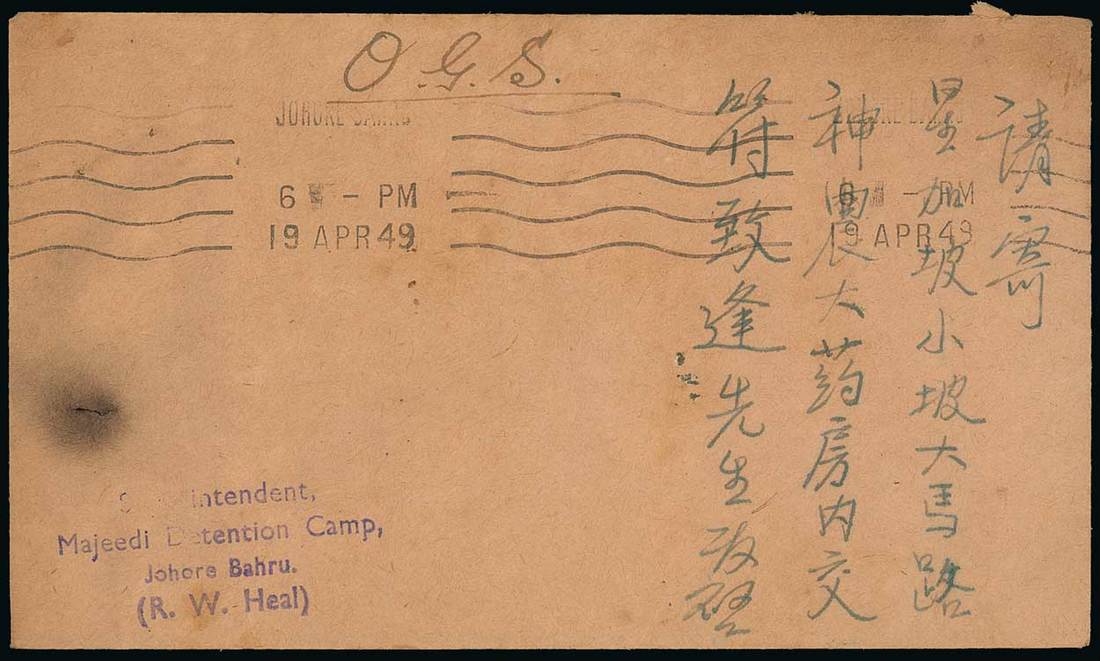 O.G.S.
JOHORE BAHRU
6 - PM
19 APR 49
- PM
19 APR 49
请寄
星加坡小坡大马路
神農大药房内交
符致逢先生收啓
intendent,
Majeedi Detention Camp,
Johore Bahru.
(R. W. Heal)